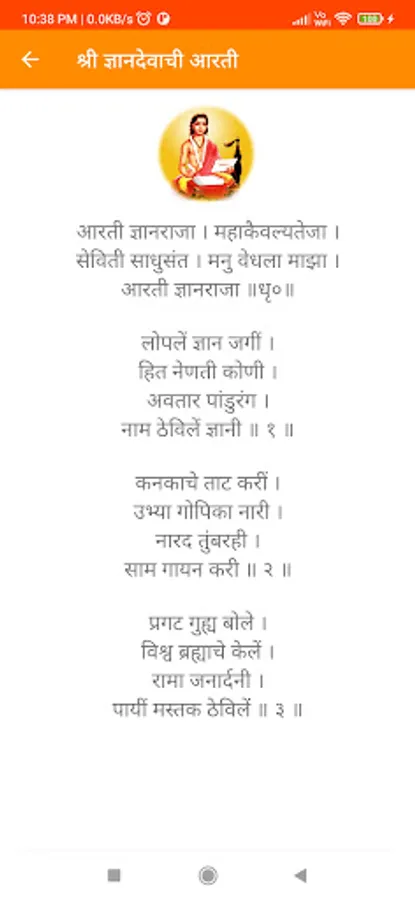 10:38 PM | 0.0KB/s
Vo
WiFi
100
श्री ज्ञानदेवाची आरती
आरती ज्ञानराजा । महाकैवल्यतेजा ।
सेविती साधुसंत । मनु वेधला माझा ।
आरती ज्ञानराजा ॥धृ०॥
लोपलें ज्ञान जगीं ।
हित नेणती कोणी ।
अवतार पांडुरंग ।
नाम ठेविलें ज्ञानी ॥ १ ॥
कनकाचे ताट करीं ।
उभ्या गोपिका नारी ।
नारद तुंबरही ।
साम गायन करी ॥ २ ॥
प्रगट गुह्य बोले ।
विश्व ब्रह्माचे केलें ।
रामा जनार्दनी ।
पायीं मस्तक ठेविलें ॥ ३ ॥